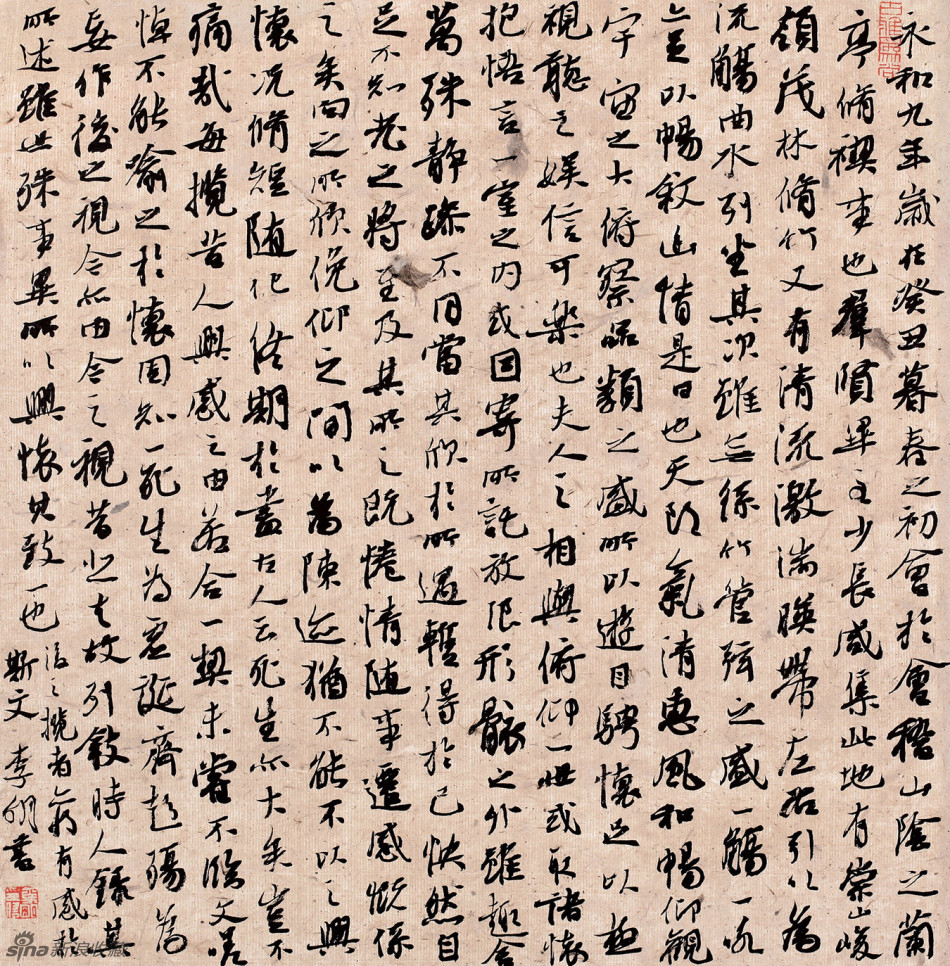 永和九年歲在癸丑暮春之初會於會稽山陰之蘭
亭脩禊事也羣賢畢至少長咸集此地有崇山峻
領茂林脩竹又有清流激湍暎帶左右引以為
流觴曲水列坐其次雖無絲竹管弦之盛一觴一詠
亦足以暢敘幽情是日也天朗氣清惠風和暢仰觀
宇宙之大俯察品類之盛所以遊目騁懷足以極
視聽之娛信可樂也夫人之相與俯仰一世或取諸懷
抱悟言一室之內或因寄所託放浪形骸之外雖趣舍
萬殊靜躁不同當其欣於所遇暫得於己快然自
足不知老之將至及其所之既惓情隨事遷感慨係
之矣向之所欣俛仰之間以為陳迹猶不能不以之興
懷況脩短隨化終期於盡古人云死生亦大矣豈不
痛哉每攬昔人興感之由若合一契未嘗不臨文嗟
悼不能喻之於懷固知一死生為虛誕齊彭殤為
妄作後之視今亦由今之視昔悲夫故列敘時人錄其
所述雖世殊事異所以興懷其致一也
後之攬者亦有感於
斯文 李明書
sina新浪收藏